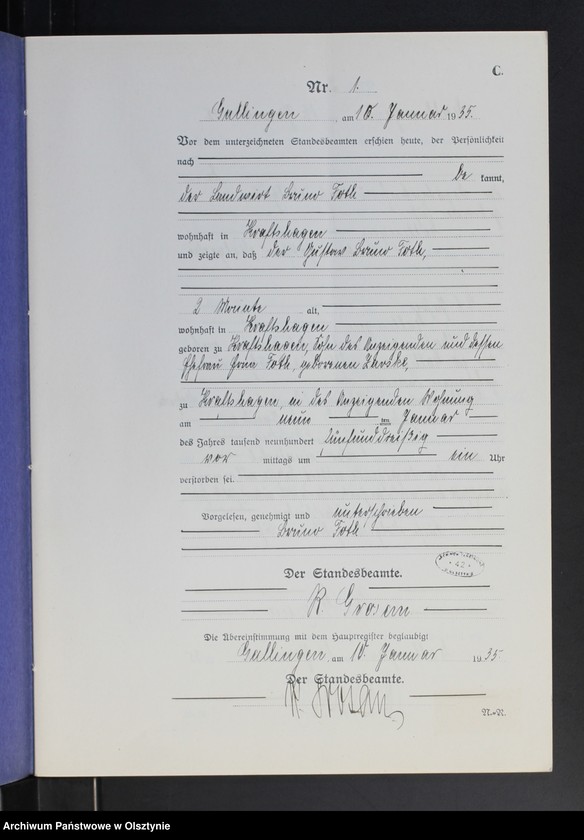 C.
Nr. 1.
Gallingen, am 10. Januar 1935.
Vor dem unterzeichneten Standesbeamten erschien heute, der Persönlichkeit
nach
be kannt,
der Landwirt Bruno Toth
wohnhaft in Kraftshagen
und zeigte an, daß der Gustav Bruno Toth,
2 Monate alt,
wohnhaft in Kraftshagen
geboren zu Kraftshagen, Sohn des Anzeigenden und dessen
Ehefrau Toth, geborenen
zu Kraftshagen, in des Anzeigenden Wohnung
am neun ten Januar
des Jahres tausend neunhundert fünfunddreißig
vor mittags um ein Uhr
verstorben sei.
Vorgelesen, genehmigt und unterschrieben
Bruno Toth
42
Der Standesbeamte.
R. Grosam
Die Übereinstimmung mit dem Hauptregister beglaubigt
Gallingen, am 10. Januar 1935
Der Standesbeamte.
R. Grosam
Archiwum Państwowe w Olsztynie